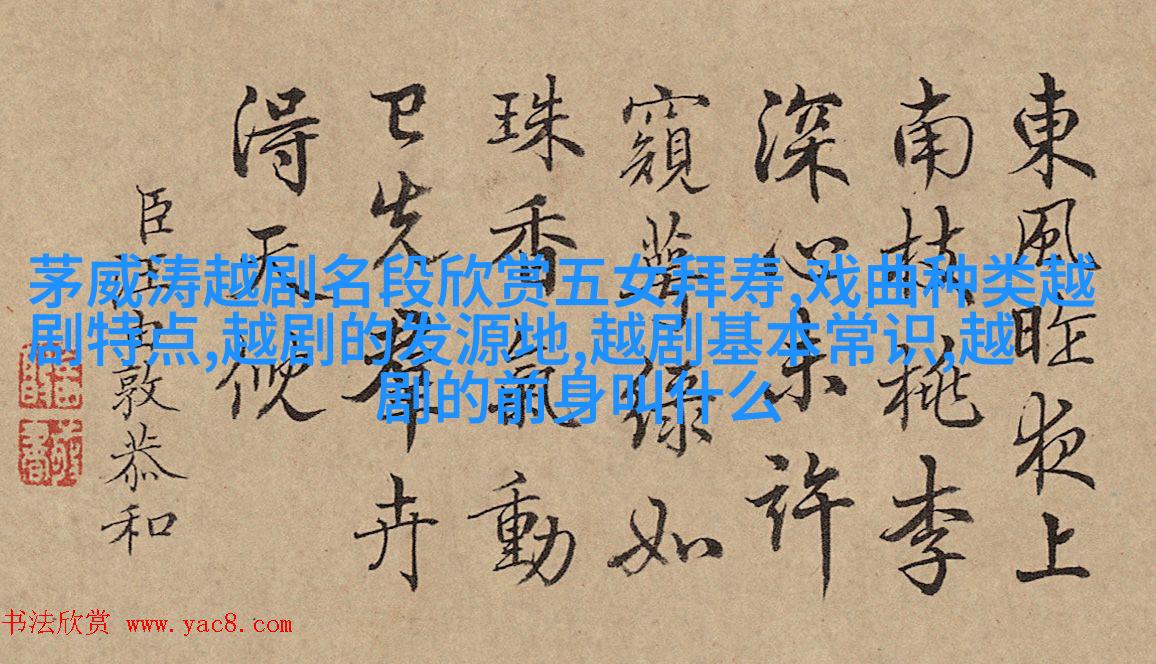 東風昨夜上
南枝桃李
深心未許
窺萼綠如
珠香氣動
已先群卉
得天
臣汪由敦恭和
茅威涛越剧名段欣赏五女拜寿,戏曲种类越
剧特点,越剧的发源地,越剧基本常识,越
剧的前身叫什么
书法欣赏 www.yac8.com